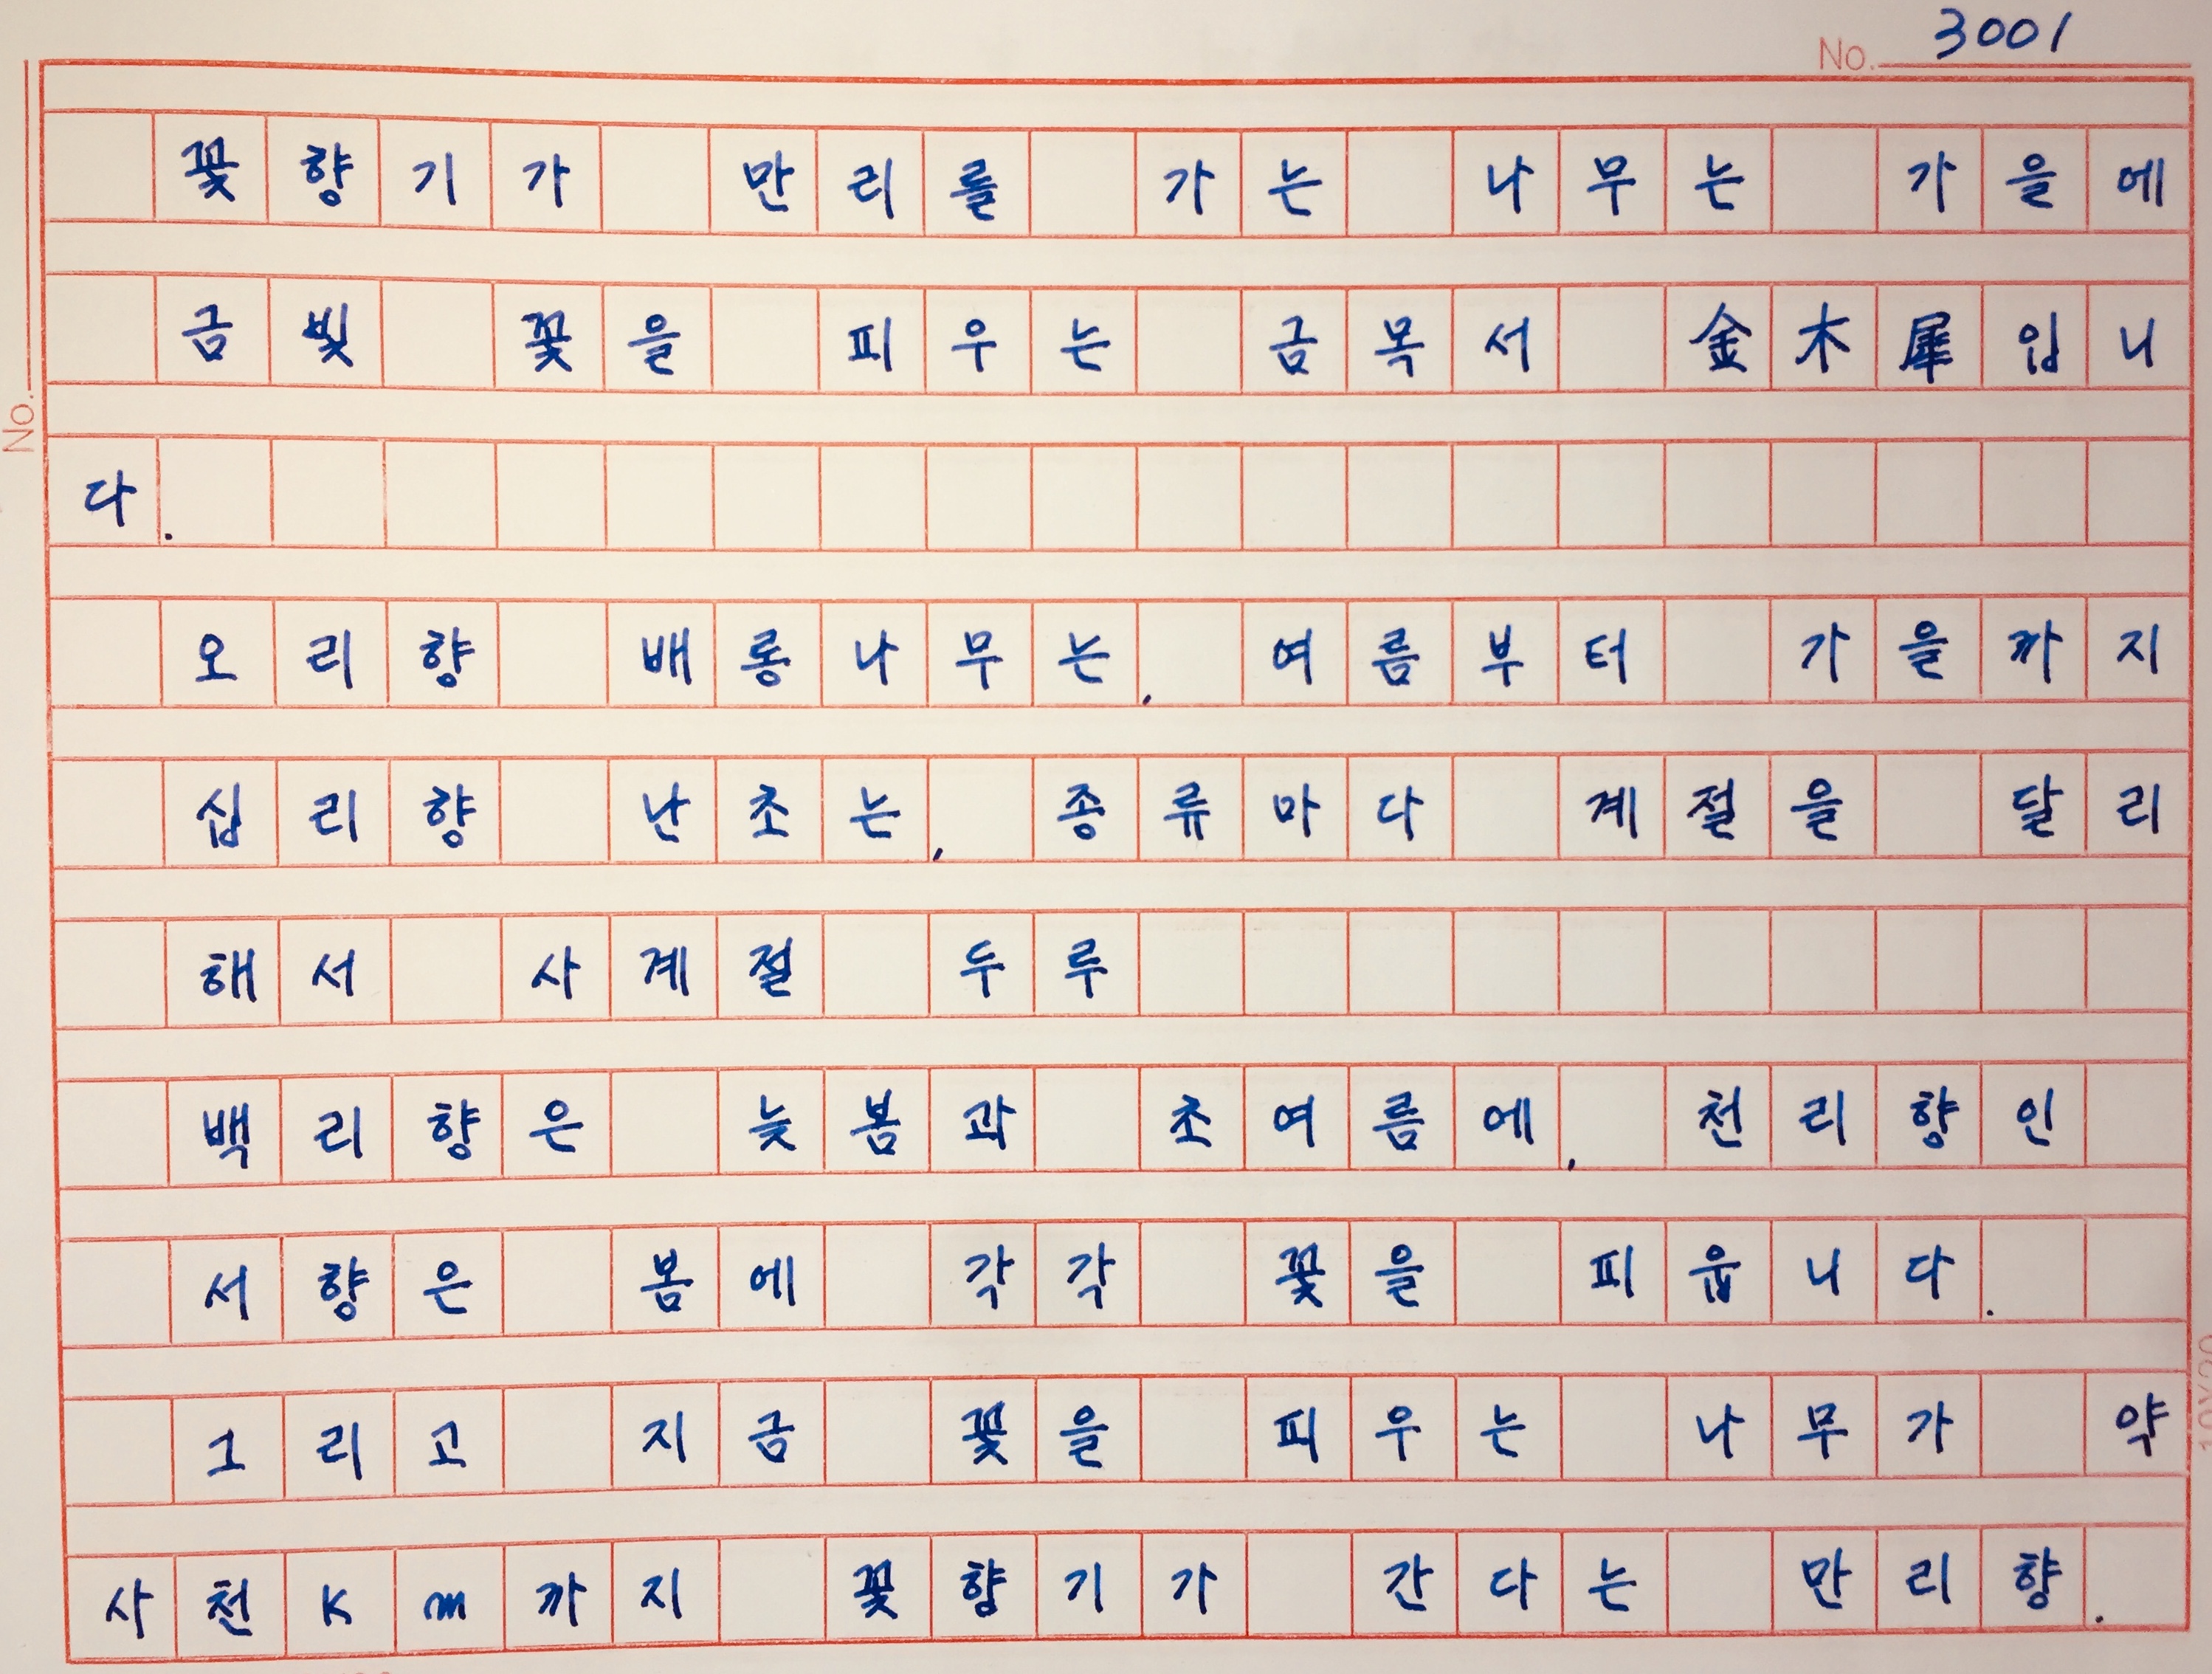 No. 3001
꽃향기가 만리를 가는 나무는 가을에
금빛 꽃을 피우는 금목서 金木犀입니
다.
오리향 배롱나무는, 여름부터 가을까지
십리향 난초는, 종류마다 계절을 달리
해서 사계절 두루
백리향은 늦봄과 초여름에, 천리향인
서향은 봄에 각각 꽃을 피웁니다.
그리고 지금 꽃을 피우는 나무가 약
사천km까지 꽃향기가 간다는 만리향.
No.
10X20